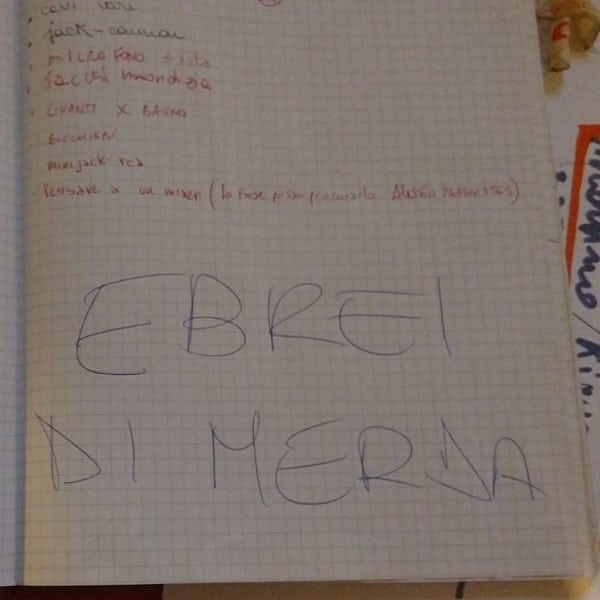 cavi vari
jack-cannon
microfono + asta
sacchi mondizia
GUANTI X BAGNO
BICCHIERI
minijack-rca
Pensare a un mixer (lo forse posso procurarlo Alessio
EBREI
DI MERDA